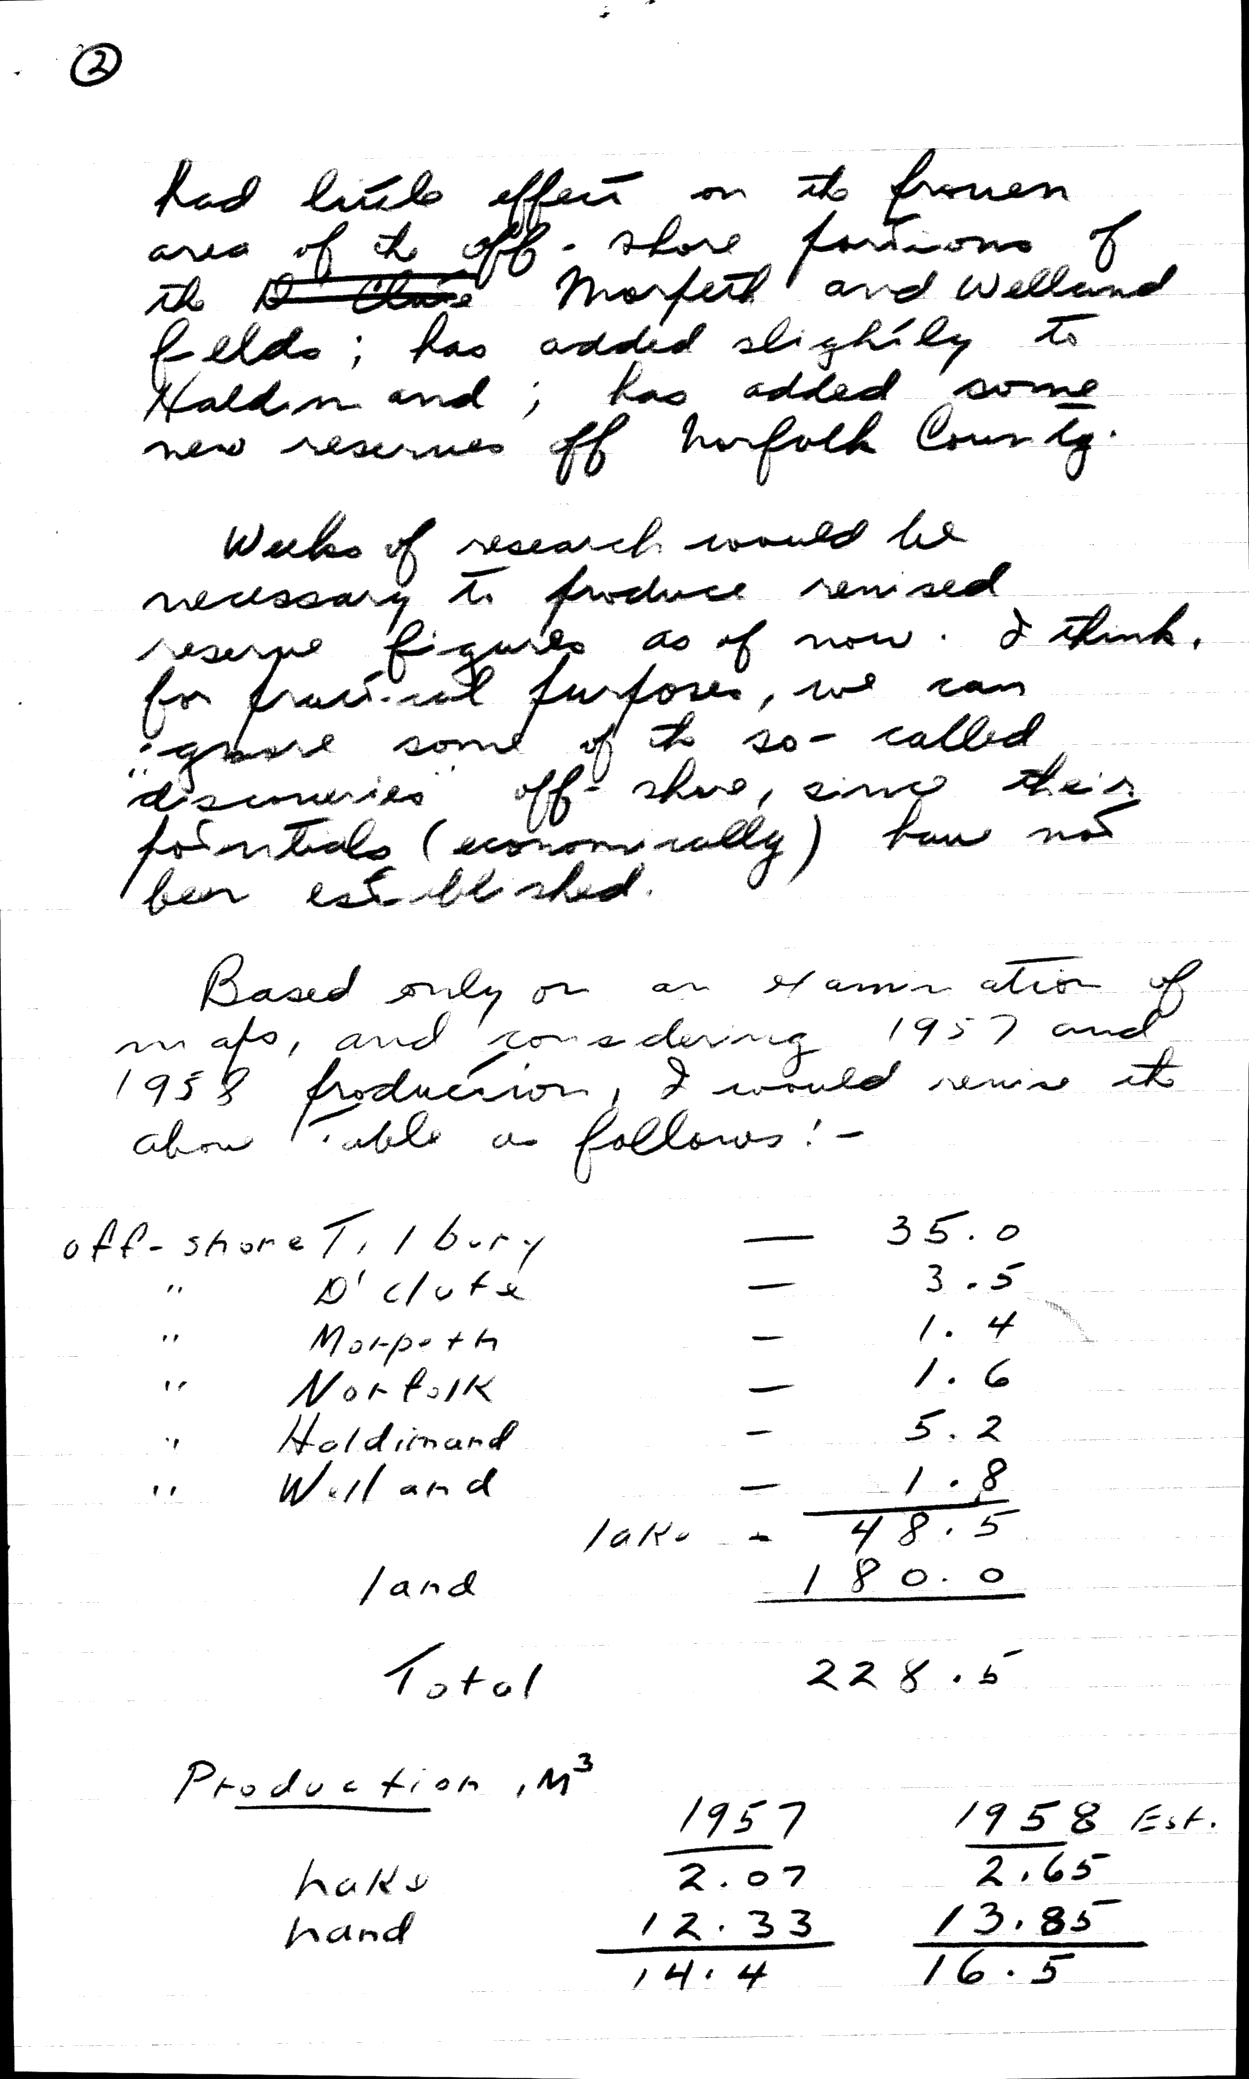 ②
had little effect on the proven
area of the off-shore portions of
the D'Clute Morpeth and Welland
fields; has added slightly to
Haldimand; has added some
new reserves off Norfolk County.
Weeks of research would be
necessary to produce revised
reserve figures as of now. I think,
for practical purposes, we can
ignore some of the so-called
"discoveries" off-shore, since their
potentials (economically) have not
been established.
Based only on an examination of
maps, and considering 1957 and
1958 production, I would revise the
above Table as follows:-
off-shore Tilbury — 35.0
" D'Clute — 3.5
" Morpeth — 1.4
" Norfolk — 1.6
" Haldimand - 5.2
" Welland — 1.8
lake - 48.5
land 180.0
Total 228.5
Production, M³
1957 1958 Est.
Lake 2.07 2.65
Land 12.33 13.85
14.4 16.5